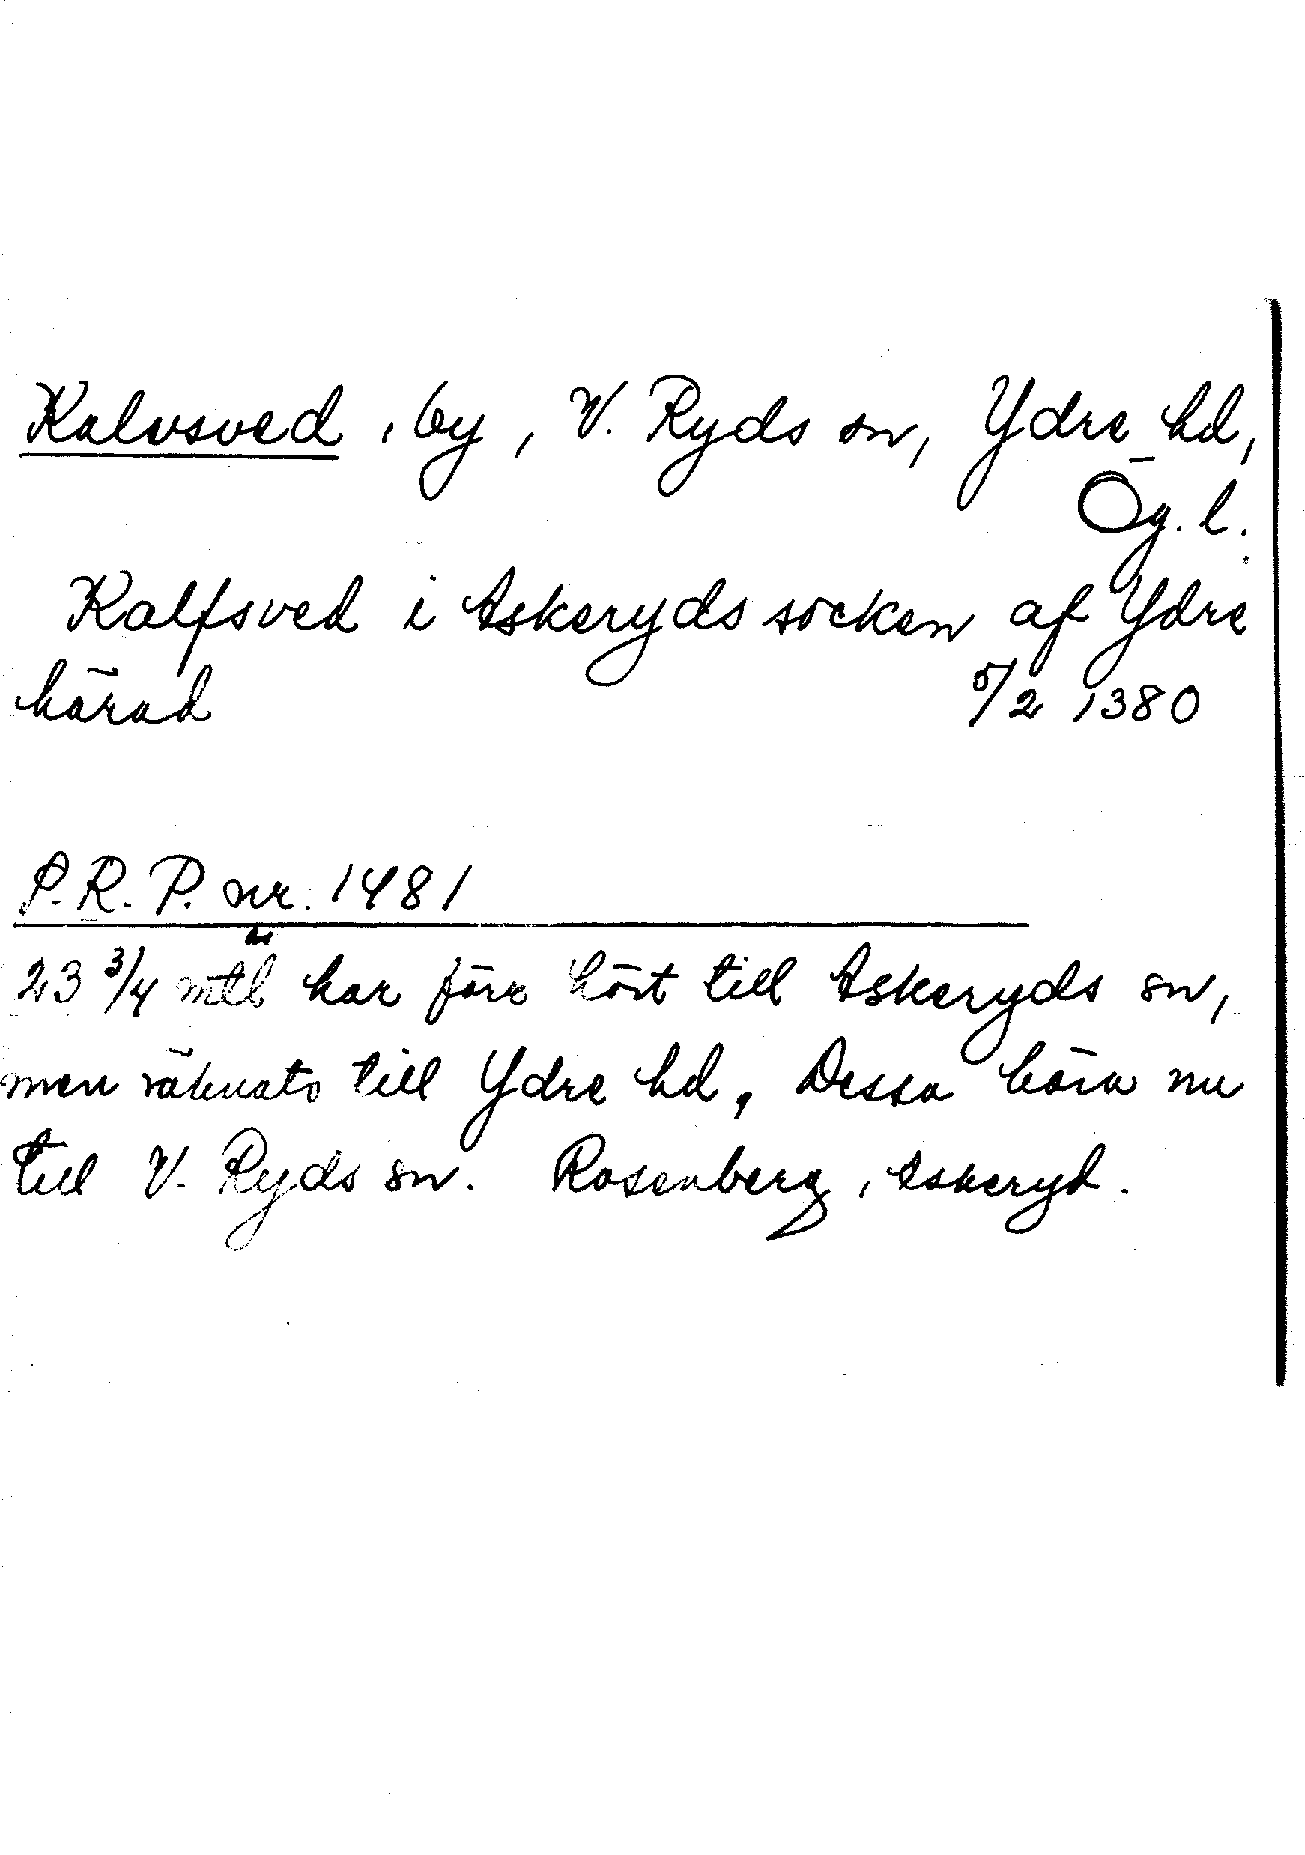 Kalvsved, by, V. Ryds sn, Ydre hd,
Ög. l.
Kalfsved i Askeryds socken af Ydre
härad 5/2 1380
S.R.P. nr. 1481
23 3/4 mtl har förr hört till Askeryds sn,
men räknats till Ydre hd, Dessa höra nu
till V. Ryds sn. Rosenberg, Askeryd.